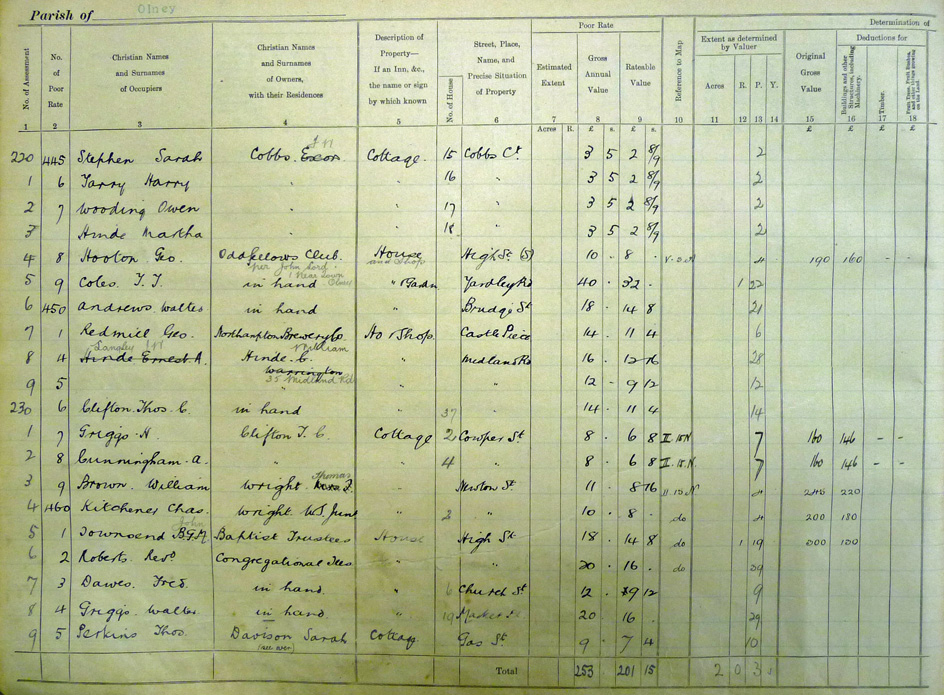 Parish of Olney
Poor Rate
Determination of
No. of Assessment
No. of Poor Rate
Christian Names and Surnames of Occupiers
Christian Names and Surnames of Owners, with their Residences
Description of Property— If an Inn, &c., the name or sign by which known
No. of House
Street, Place, Name, and Precise Situation of Property
Estimated Extent
Gross Annual Value
Rateable Value
Reference to Map
Extent as determined by Valuer
Acres R. P. Y.
Original Gross Value
Deductions for
Buildings and other Structures, including Machinery.
Timber.
Fruit Trees, Fruit Bushes, and other things growing on the Land.
1 2 3 4 5 6 7 8 9 10 11 12 13 14 15 16 17 18
Acres R. £ s. £ s. £ £ £ £
220 445 Stephen Sarah Cobbs. Cottage. 15 Cobbs Ct. 3 5 2 8/9 2
1 6 Tarry Harry " " 16 3 5 2 8/9 2
2 7 Wooding Owen " " 17 3 5 2 8/9 2
3 Hinde Martha 18 3 5 2 8/9 2
4 8 Hooton Geo. Oddfellows Club. House and Shop High St (S) 10 . 8 . 190 160 - -
per John Lord
5 9 Coles. T. J. in hand " & Gardn Yardley Rd 40 . 32 . 1 22
6 450 Andrews Walter in hand " Bridge St 18 . 14 8 21
7 1 Redmill Geo. Northampton Brewery Co. Ho & Shop. Castle Piece 14 . 11 4 6
Langley William
8 4 Hinde Ernest A. Hinde. C. " Midland Rd 16 . 12 16 28
Warrington
35 Midland Rd
9 5 " " 12 . 9 12 12
230 6 Clifton Thos. C. in hand " 37 " 14 . 11 4 14
1 7 Griggs H. Clifton T. C. Cottage 2 Cowper St 8 . 6 8 II. 15 N 7 160 146 - -
2 8 Cunningham A. " " 4 " 8 . 6 8 II. 15. N. 7 160 146 - -
Thomas
3 9 Brown. William Wright " Newton St. 11 . 8 16 II 15 N 245 220
4 460 Kitchener Chas. Wright W. J. Junr " 2 " 10 . 8 . do 200 180
John
5 1 Townsend Baptist Trustees House High St. 18 . 14 8 do 1 19
6 2 Roberts Revd. Congregational Tees " " 20 . 16 . do 39
7 3 Dawes. Fred. in hand. " 6 Church St 12 . 9 12 9
8 4 Griggs Walter in hand. " 19 Market Pl 20 16 29
9 5 Perkins Thos. Davison Sarah Cottage Gas St. 9 . 7 4 10
(see over)
Total 253 201 15 2 0 3